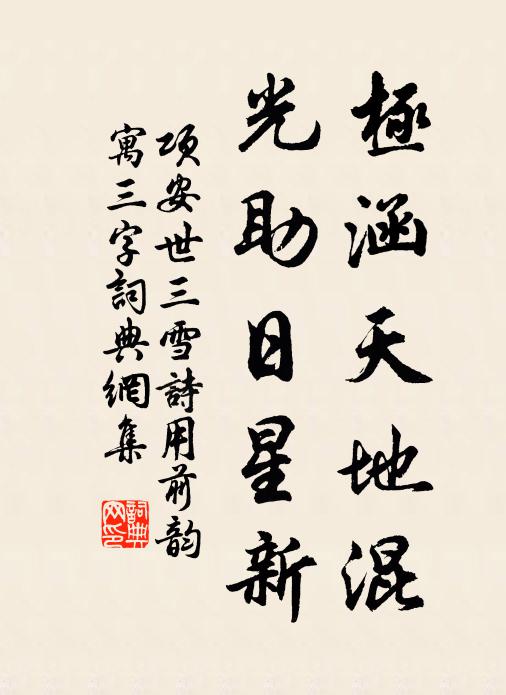 極涵天地混
光助日星新
項安世三雪詩用前韵
寓三字詞典網集
詞典网印